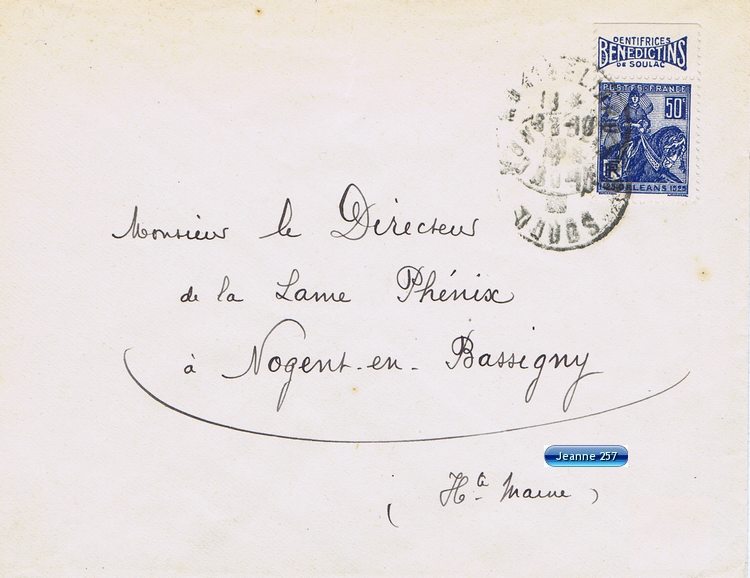 DENTIFRICES
BÉNÉDICTINS
DE SOULAC
POSTES-FRANCE
50c
ORLEANS 1929
DOUBS
Monsieur le Directeur
de la Lame Phénix
à Nogent-en-Bassigny
Jeanne 257
(Hte Marne)